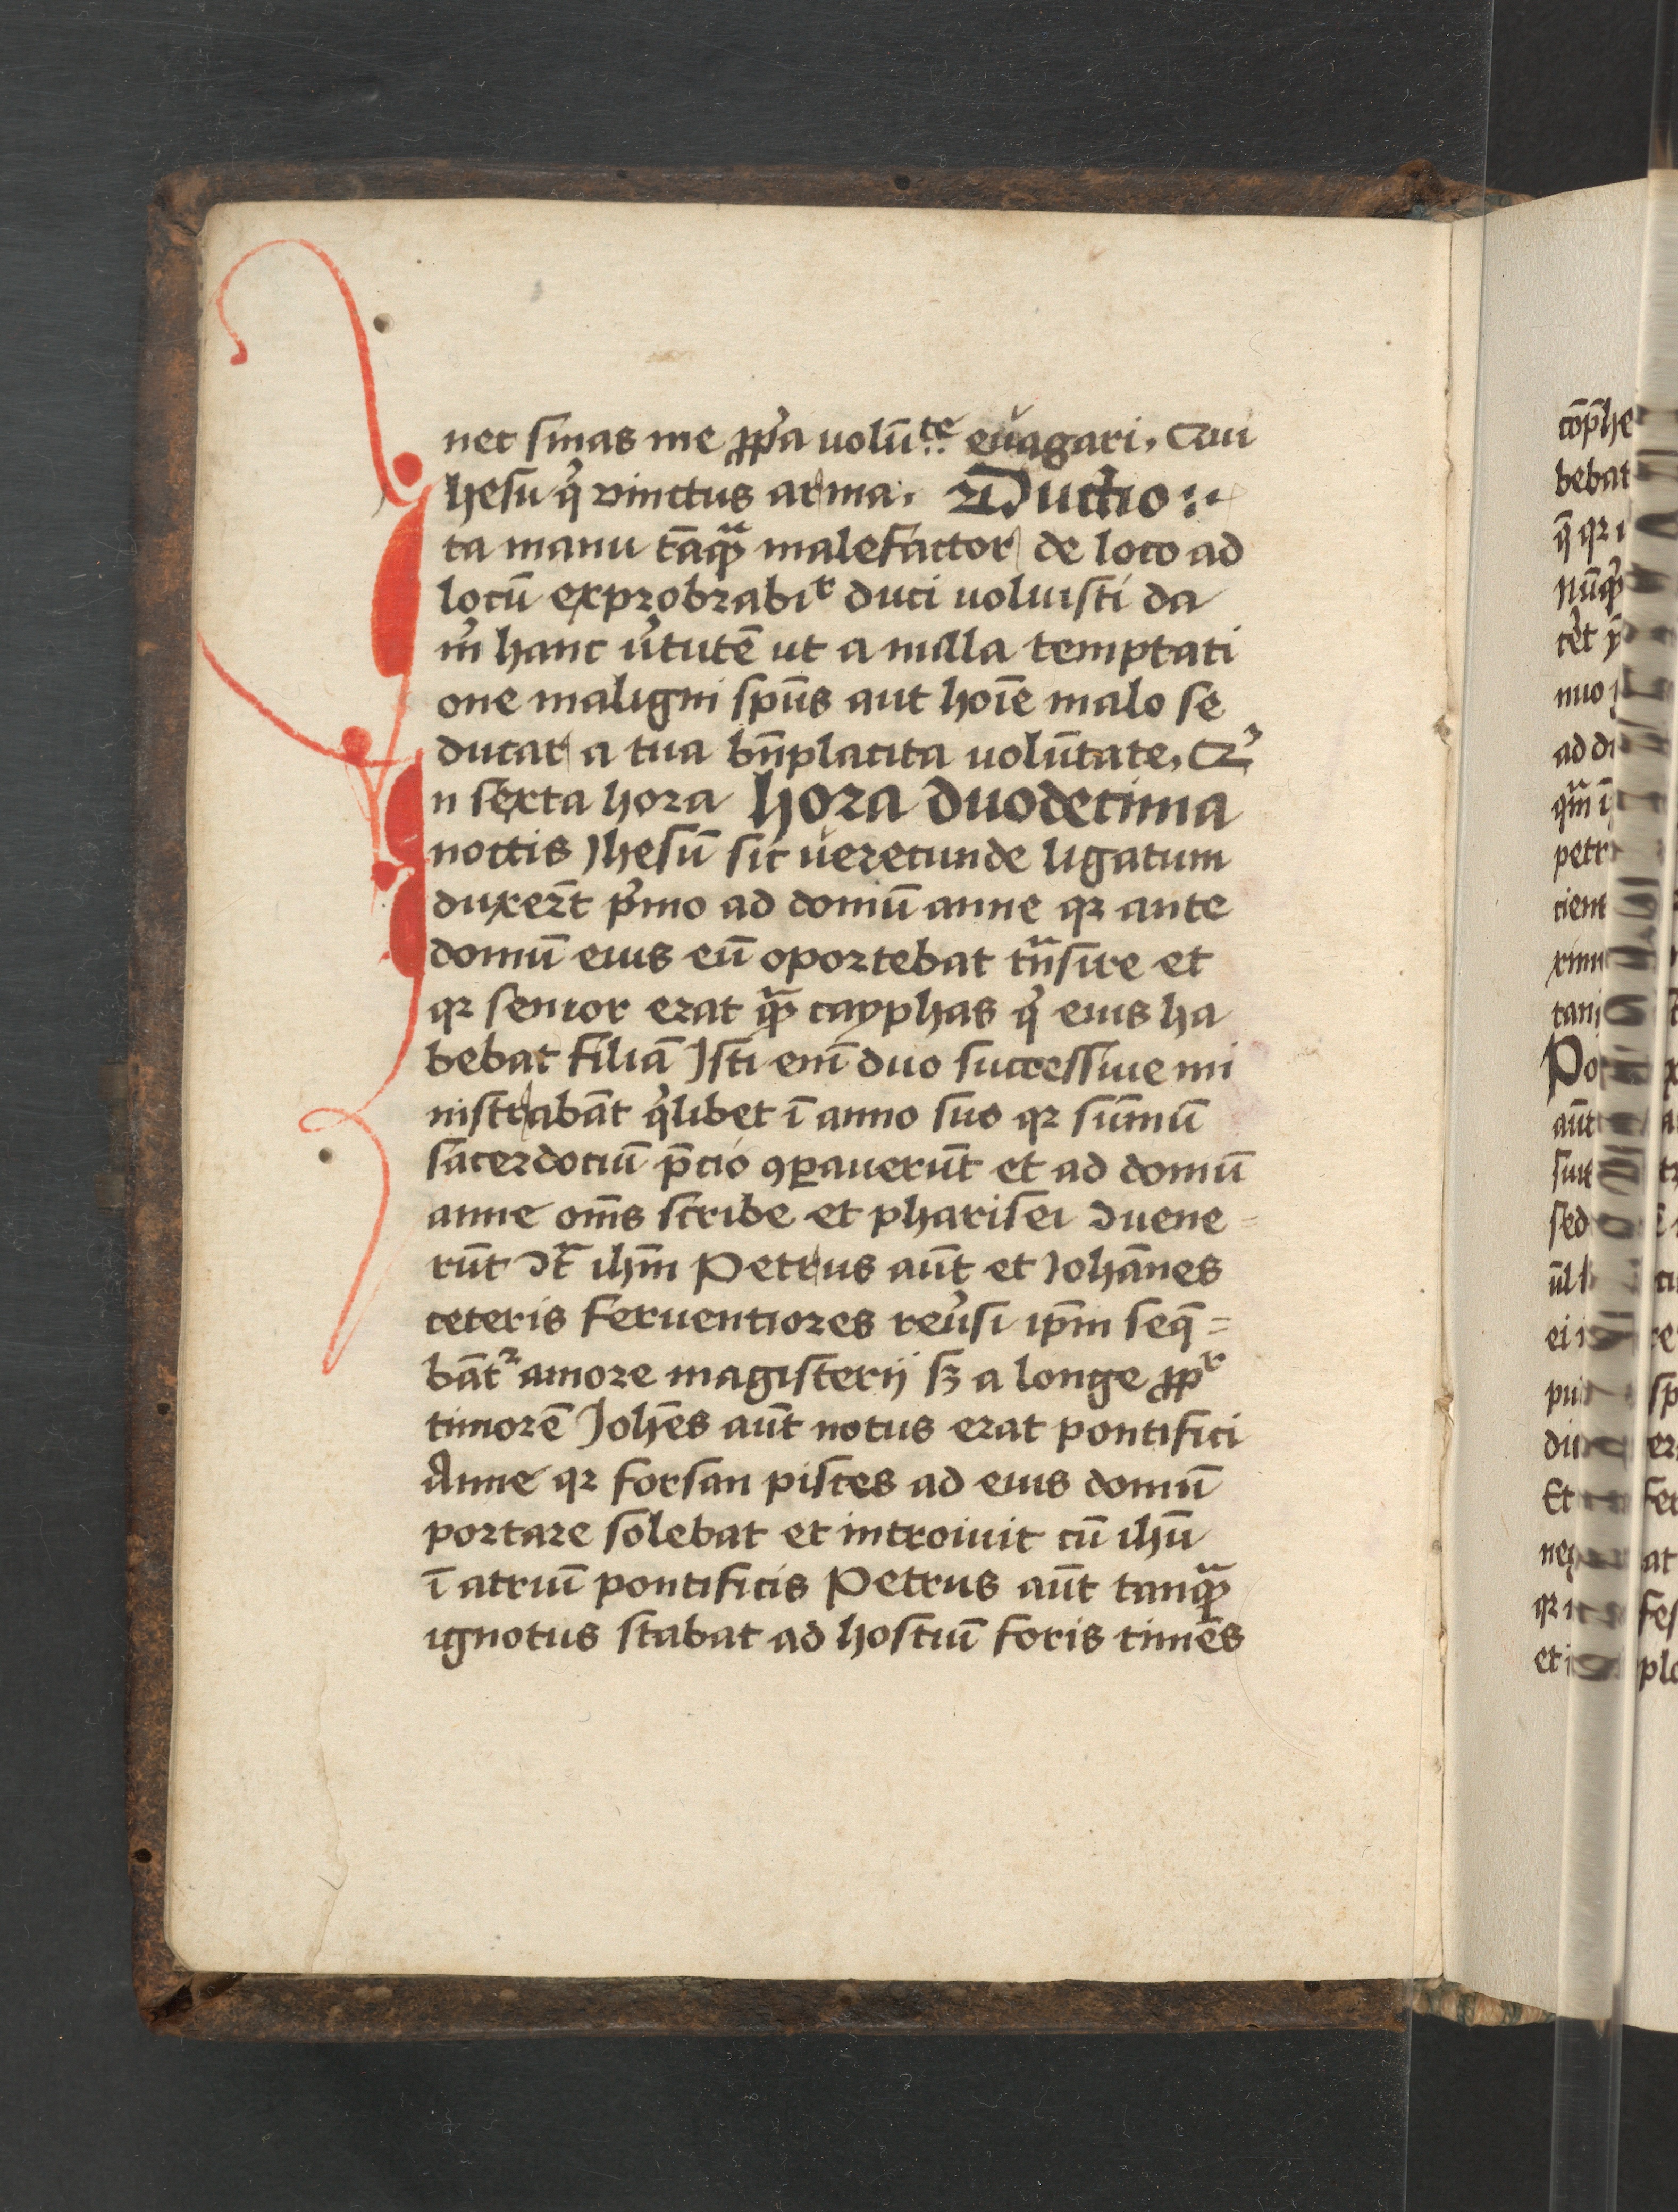 nec sinas me ꝓpͥa volūte evagari, Qui
Jhesu qͥ vinctus arma. Ductio
ta manu tāqᷓ malefactor de loco ad
locū exprobrabir duci voluisti da
m̉ hanc v̉tutē ut a nulla temptati
one maligni spūs aut hoīe malo se
ducar a tua bn̄placita volūtate, Q
In sexta hora hora duodecima
noctis Jhesū sic verecunde ligatum
duxer̄t pͥmo ad domū anne qꝛ ante
domū eius eū oportebat trᷓnsire et
qꝛ senior erat qᷓ cayphas qͥ eius ha
bebat filiā Isti eni̅ duo successive mi
nistrabāt qͥlibet ī anno suo qꝛ sūmū
sacerdociū p̄cio ꝯꝑaverūt et ad domū
anne om̄s scribe et pharisei ꝯvene=
rūt ꝯtᷓ ihm̄ Petrus aūt et Johānes
ceteris ferventiores reṽsi ip̄m seq̄=
bāt᷑ amore magisterij sꝫ a longe ꝓpr
timorē Johēs aūt notus erat pontifici
Anne qꝛ forsan pisces ad eius domū
portare solebat et introivit cū ihū
ī atriū pontificis Petrus aūt tanqᷓ
ignotus stabat ad hostiū foris timēs
cōp̄he
bebat
q̄ qꝛ
nūqͥ
nuo
ad di
petr
cient
xim
tani
Po
aūt
sed
Et